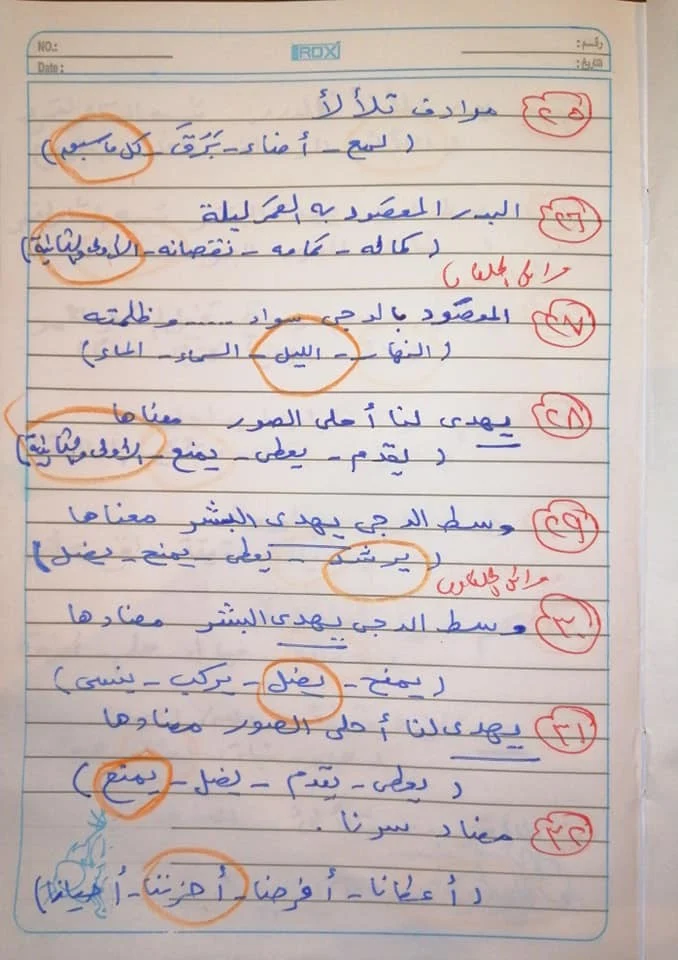 NO.: RDX رقم:
Date: التاريخ:
٢٥ مرادف تلألأ
( لمع - أضاء - بَرَقَ - كل ما سبق )
٢٦ البدر المقصود به القمر ليلة
( كماله - تمامه - نقصانه - الأولى والثانية )
٢٧ المقصود بالدجى سواد ...... وظلمته
( النهار - الليل - السماء - الماء )
٢٨ يهدى لنا أحلى الصور معناها
( يقدم - يعطى - يمنع - الأولى والثانية )
٢٩ وسط الدجى يهدى البشر معناها
( يرشد - يعطى - يمنح - يضل )
٣٠ وسط الدجى يهدى البشر مضادها
( يمنح - يضل - يركب - ينسى )
٣١ يهدى لنا أحلى الصور مضادها
( يعطى - يقدم - يضل - يمنع )
٣٢ مضاد سرنا .
( أعطانا - أفرحنا - أحزننا - أحيانا )